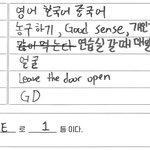 영어 한국어 중국어
농구하기, Good sense,
연습실 갈 때
얼굴
Leave the door open
GD
E 로 1 등 이다.